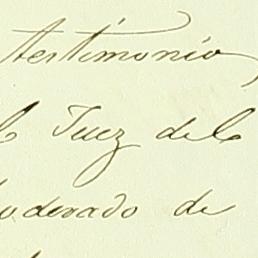 testimonio,
l Juez del
oderado de